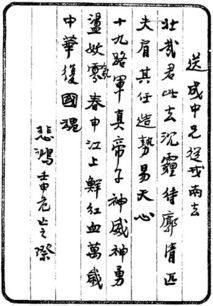 送成中兄从戎南去
壮哉君此去沉霾待廓清匹
夫肩其任造势易天心
十九路軍真帝子神威神勇
盪妖氛春申江上鮮紅血萬歲
中華復國魂
悲鴻壬申危亡之際